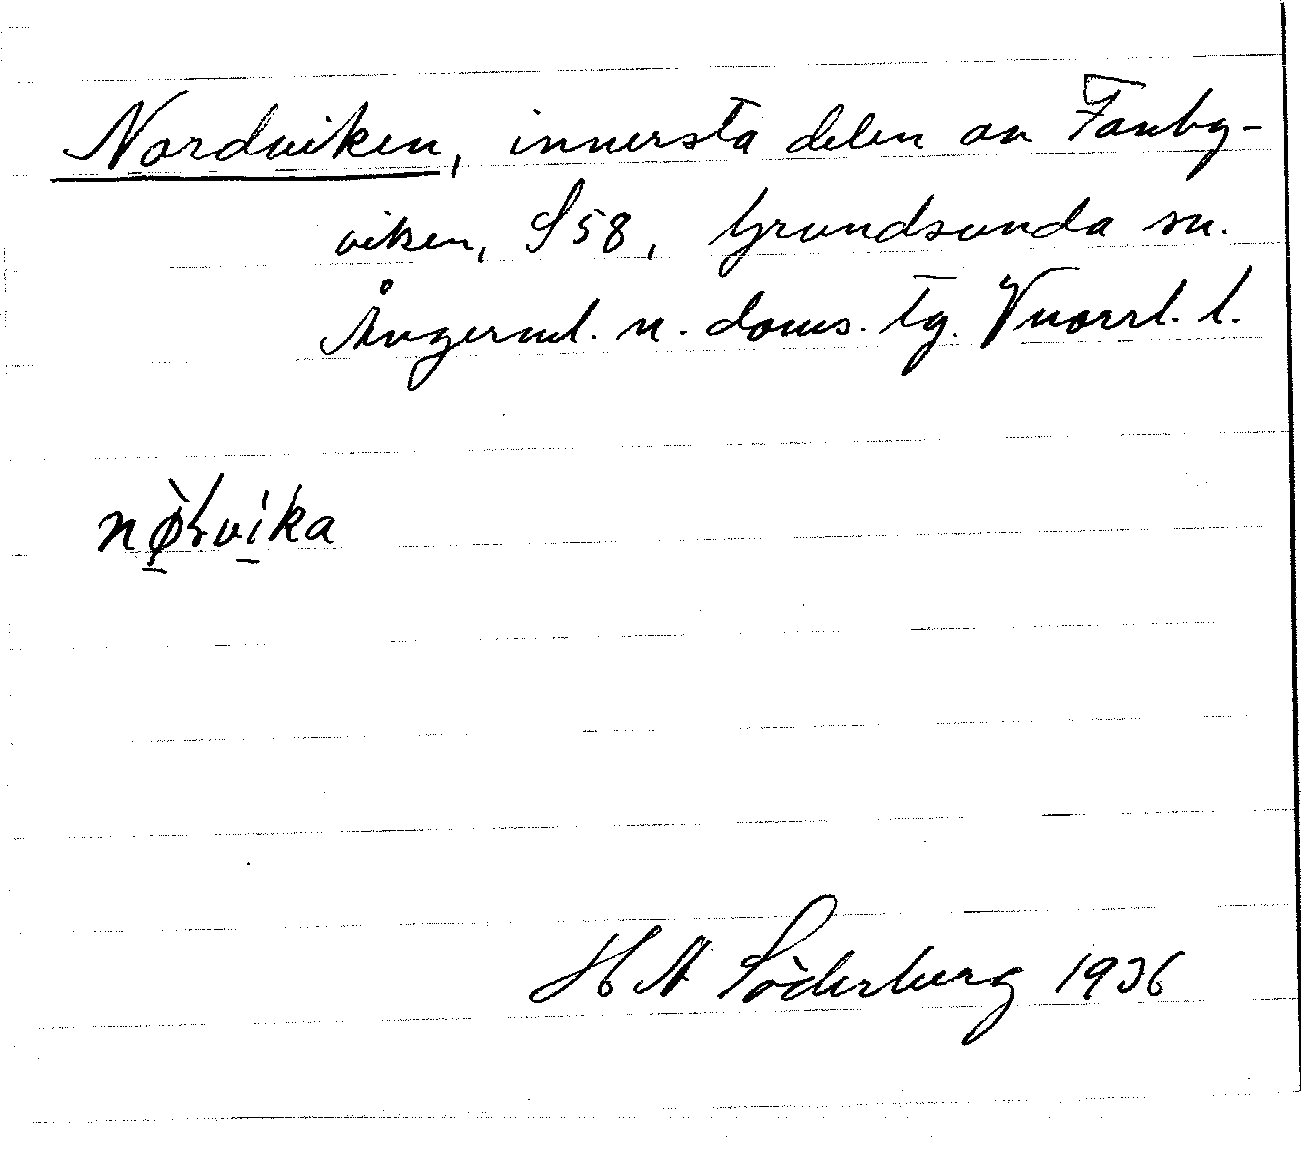 Nordviken, innersta delen av Fanby-
viken, S 58, Grundsunda sn.
Ångerml. n. doms. tg. Vnorrl. l.
nø̀ɽvika
H A Söderberg 1936